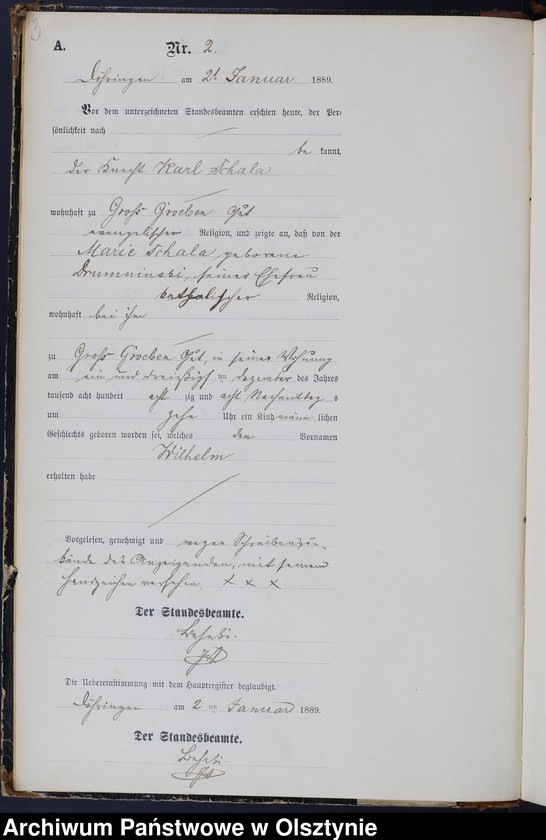 3
A. Nr. 2.
Döhringen am 2t Januar 1889.
Vor dem unterzeichneten Standesbeamten erschien heute, der Per-
sönlichkeit nach
be kannt,
der Knecht Karl Schala
wohnhaft zu Gross Groeben Gut
evangelischer Religion, und zeigte an, daß von der
Marie Schala geborene
seiner Ehefrau
katholischer Religion,
wohnhaft bei ihm
zu Gross Groeben Gut, in seiner Wohnung
am ein und dreißigsten Dezember des Jahres
tausend acht hundert acht zig und acht Nachmittag s
um zehn Uhr ein Kind männ lichen
Geschlechts geboren worden sei, welches den Vornamen
Wilhelm
erhalten habe
Vorgelesen, genehmigt und wegen Schreibensun-
kunde des Anzeigenden, mit seinem
Handzeichen versehen. + + +
Der Standesbeamte.
Die Uebereinstimmung mit dem Hauptregister beglaubigt.
Döhringen am 2 ten Januar 1889.
Der Standesbeamte.
Archiwum Państwowe w Olsztynie